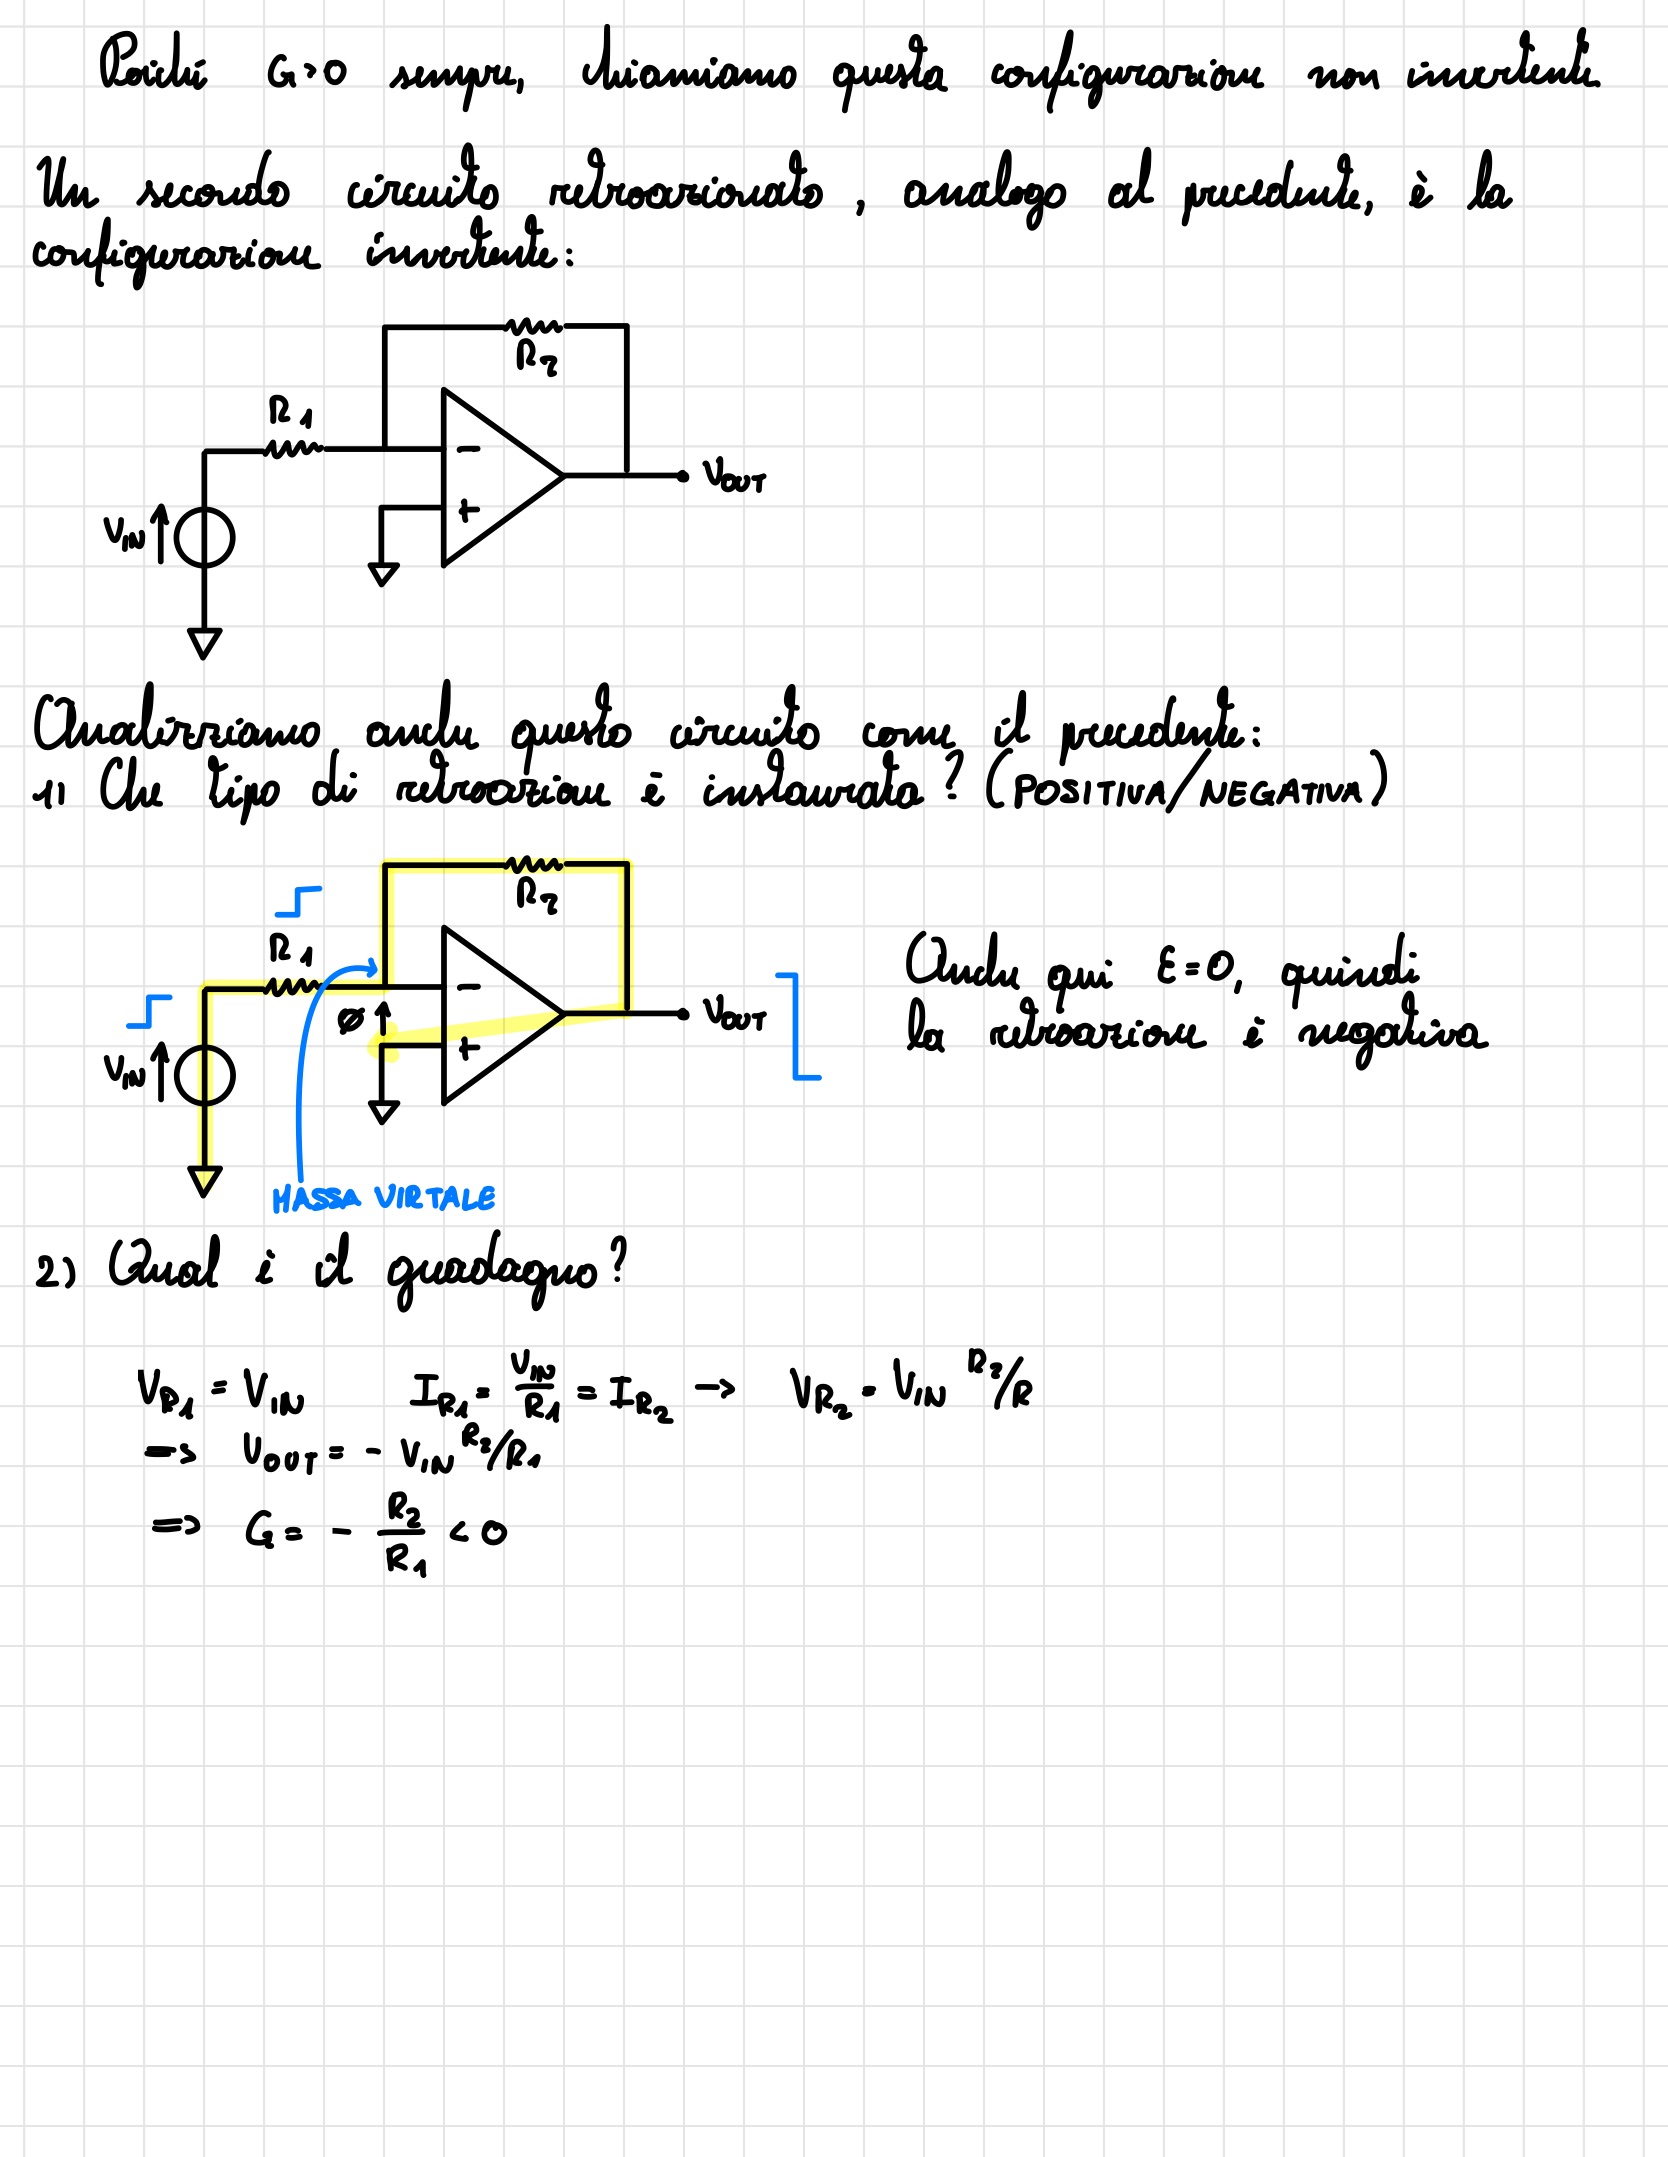 Poiché G>0 sempre, chiamiamo questa configurazione non invertente
Un secondo circuito retroazionato, analogo al precedente, è la
configurazione invertente:
R2
R1
−
VOUT
+
VIN
Analizziamo anche questo circuito come il precedente:
1) Che tipo di retroazione è instaurata? (POSITIVA/NEGATIVA)
R2
R1
Anche qui ε=0, quindi
−
Ø
VOUT
la retroazione è negativa
+
VIN
MASSA VIRTALE
2) Qual è il guadagno?
VR1 = VIN IR1 = VIN/R1 = IR2 → VR2 = VIN R2/R
=> VOUT = - VIN R2/R1
=> G = - R2/R1 < 0